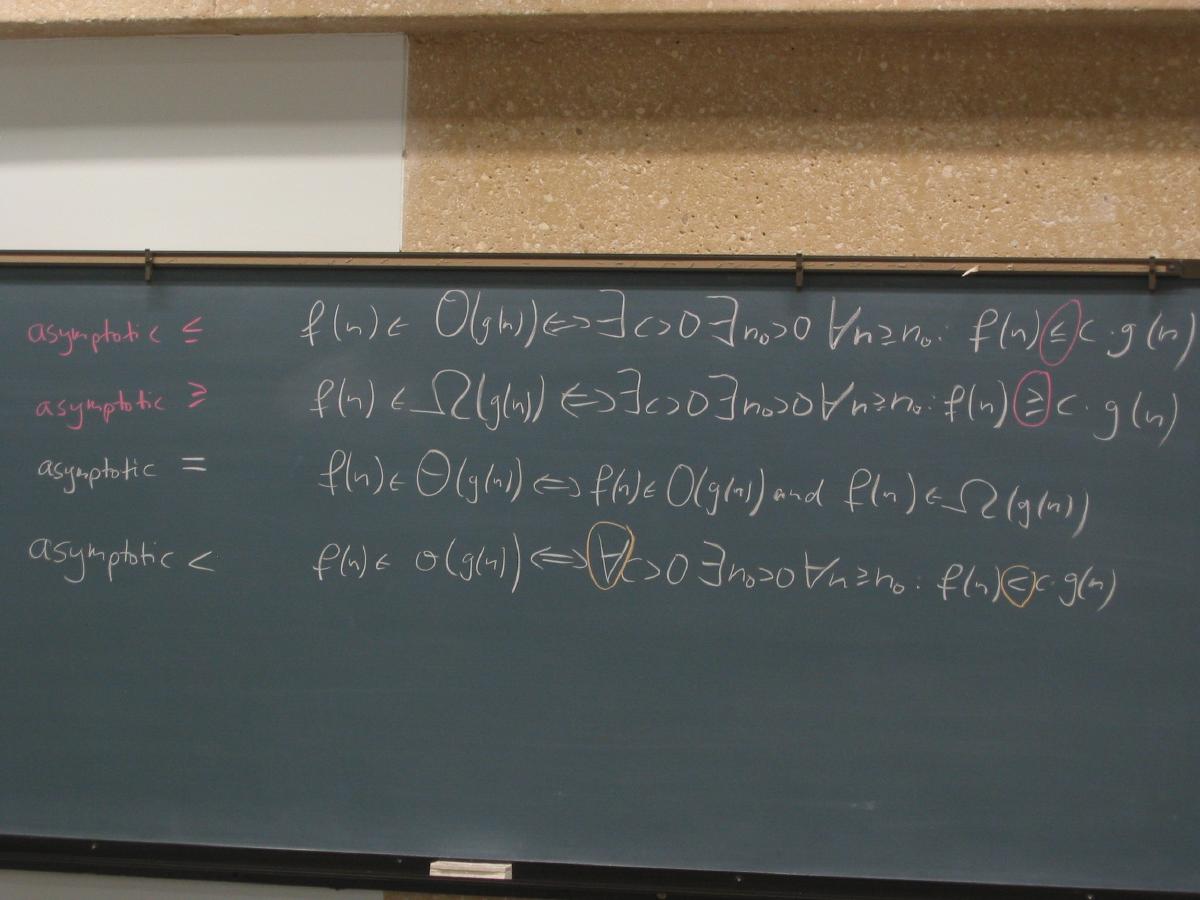 asymptotic ≤ f(n) ∈ O(g(n)) ⇔ ∃ c > 0 ∃ n₀ > 0 ∀ n ≥ n₀: f(n) ≤ c · g(n)
asymptotic ≥ f(n) ∈ Ω(g(n)) ⇔ ∃ c > 0 ∃ n₀ > 0 ∀ n ≥ n₀: f(n) ≥ c · g(n)
asymptotic = f(n) ∈ Θ(g(n)) ⇔ f(n) ∈ O(g(n)) and f(n) ∈ Ω(g(n))
asymptotic < f(n) ∈ o(g(n)) ⇔ ∀ c > 0 ∃ n₀ > 0 ∀ n ≥ n₀: f(n) < c · g(n)